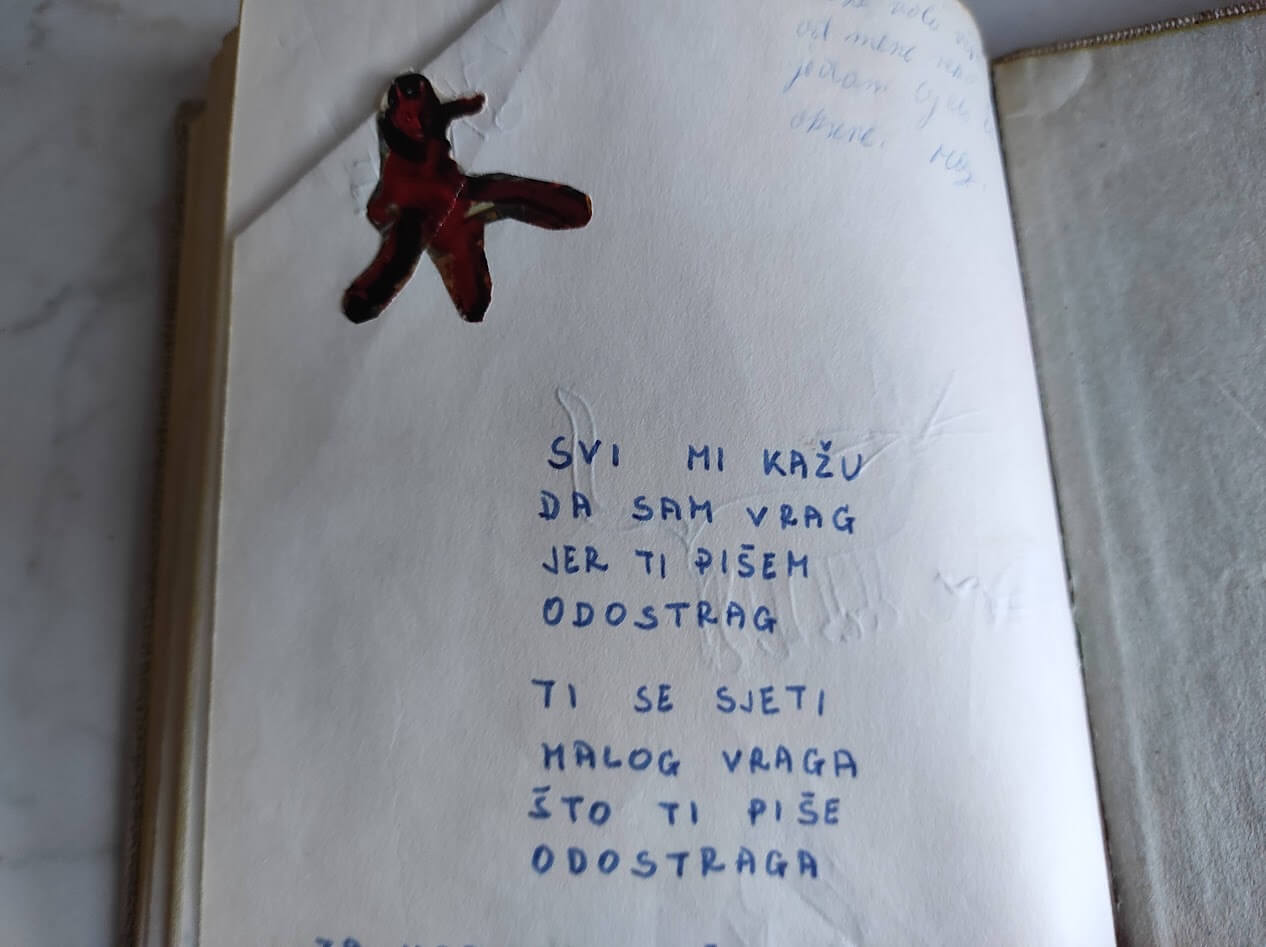 od mene
jedan
SVI MI KAŽU
DA SAM VRAG
JER TI PIŠEM
ODOSTRAG
TI SE SJETI
MALOG VRAGA
ŠTO TI PIŠE
ODOSTRAGA